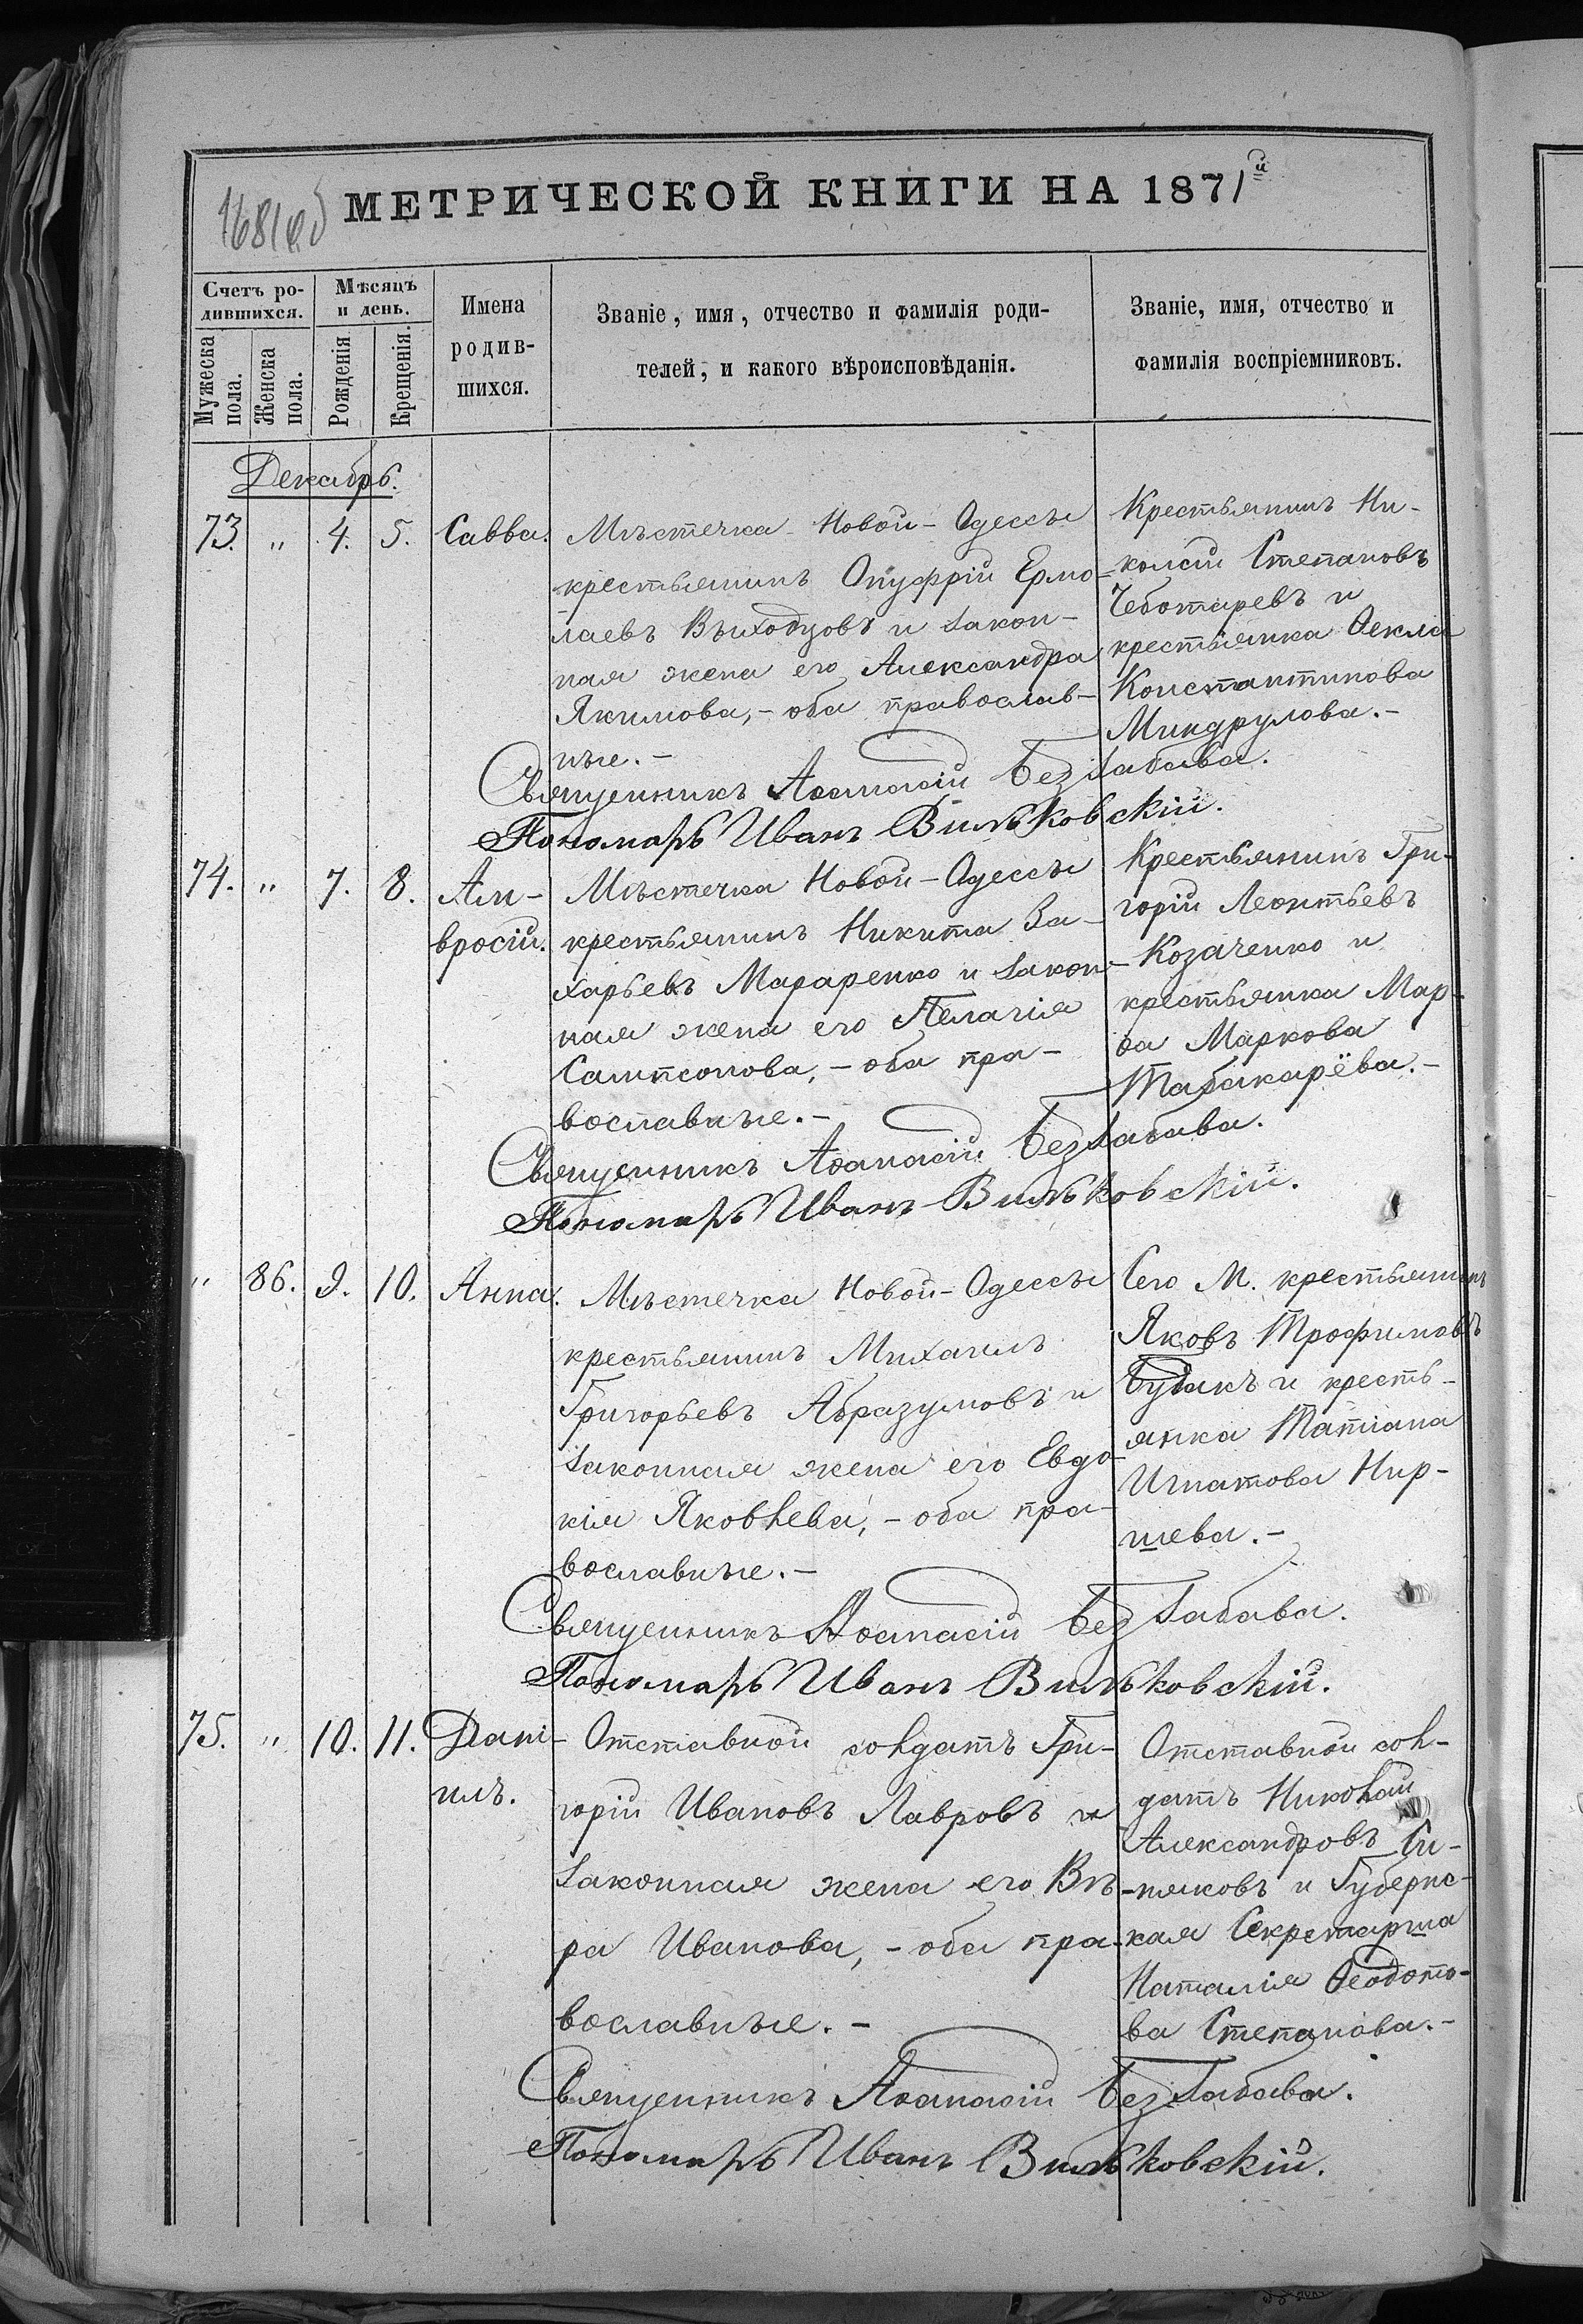 МЕТРИЧЕСКОЙ КНИГИ НА 1871й
Счетъ ро-
дившихся.
Мѣсяцъ
и день.
Мужеска
пола.
Женска
пола.
Рожденія.
Крещенія.
Имена
родив-
шихся.
Званіе, имя, отчество и фамилія роди-
телей, и какого вѣроисповѣданія.
Званіе, имя, отчество и
фамилія воспріемниковъ.
Декабрь.
73. " 4. 5. Савва.
Мѣстечка Новой-Одессы
крестьянинъ Онуфрій Ермо-
лаевъ Выходцовъ и закон-
ная жена его Александра
Якимова,- оба православ-
ные.-
Крестьянинъ Ни-
колай Степановъ
Чеботаревъ и
крестьянка Ѳекла
Константинова
Миндрулова.-
Священникъ Аѳанасій Беззабава.
Пономарь Иванъ Вильковскій.
74. " 7. 8. Ам-
вросій.
Мѣстечка Новой-Одессы
крестьянинъ Никита За-
харьевъ Мараренко и закон-
ная жена его Пелагія
Сампсонова,- оба пра-
вославные.-
Крестьянинъ Гри-
горій Леонтьевъ
Козаченко и
крестьянка Мар-
ѳа Маркова
Табакарёва.-
Священникъ Аѳанасій Беззабава.
Пономарь Иванъ Вильковскій.
" 86. 9. 10. Анна.
Мѣстечка Новой-Одессы
крестьянинъ Михаилъ
Григорьевъ Абразумовъ и
законная жена его Евдо-
кія Яковлева,- оба пра-
вославные.-
Сего М. крестьянинъ
Яковъ Трофимовъ
Будакъ и кресть-
янка Татіана
Игнатова Кир-
шева.-
Священникъ Аѳанасій Беззабава.
Пономарь Иванъ Вильковскій.
75. " 10. 11. Дані-
илъ.
Отставной солдатъ Гри-
горій Ивановъ Лавровъ и
законная жена его Вѣ-
ра Иванова,- оба пра-
вославные.-
Отставной сол-
датъ Николай
Александровъ Си-
няковъ и Губернс-
кая Секретарша
Наталія Ѳеодото-
ва Степанова.-
Священникъ Аѳанасій Беззабава.
Пономарь Иванъ Вильковскій.